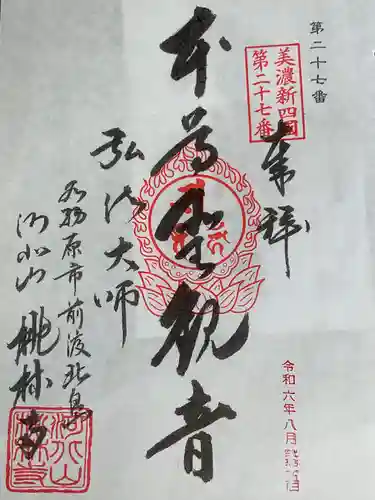 第二十七番
美濃新四国
第二十七番
奉拝
本尊聖観音
弘法大師
各務原市前渡北島
桃林寺
令和六年八月